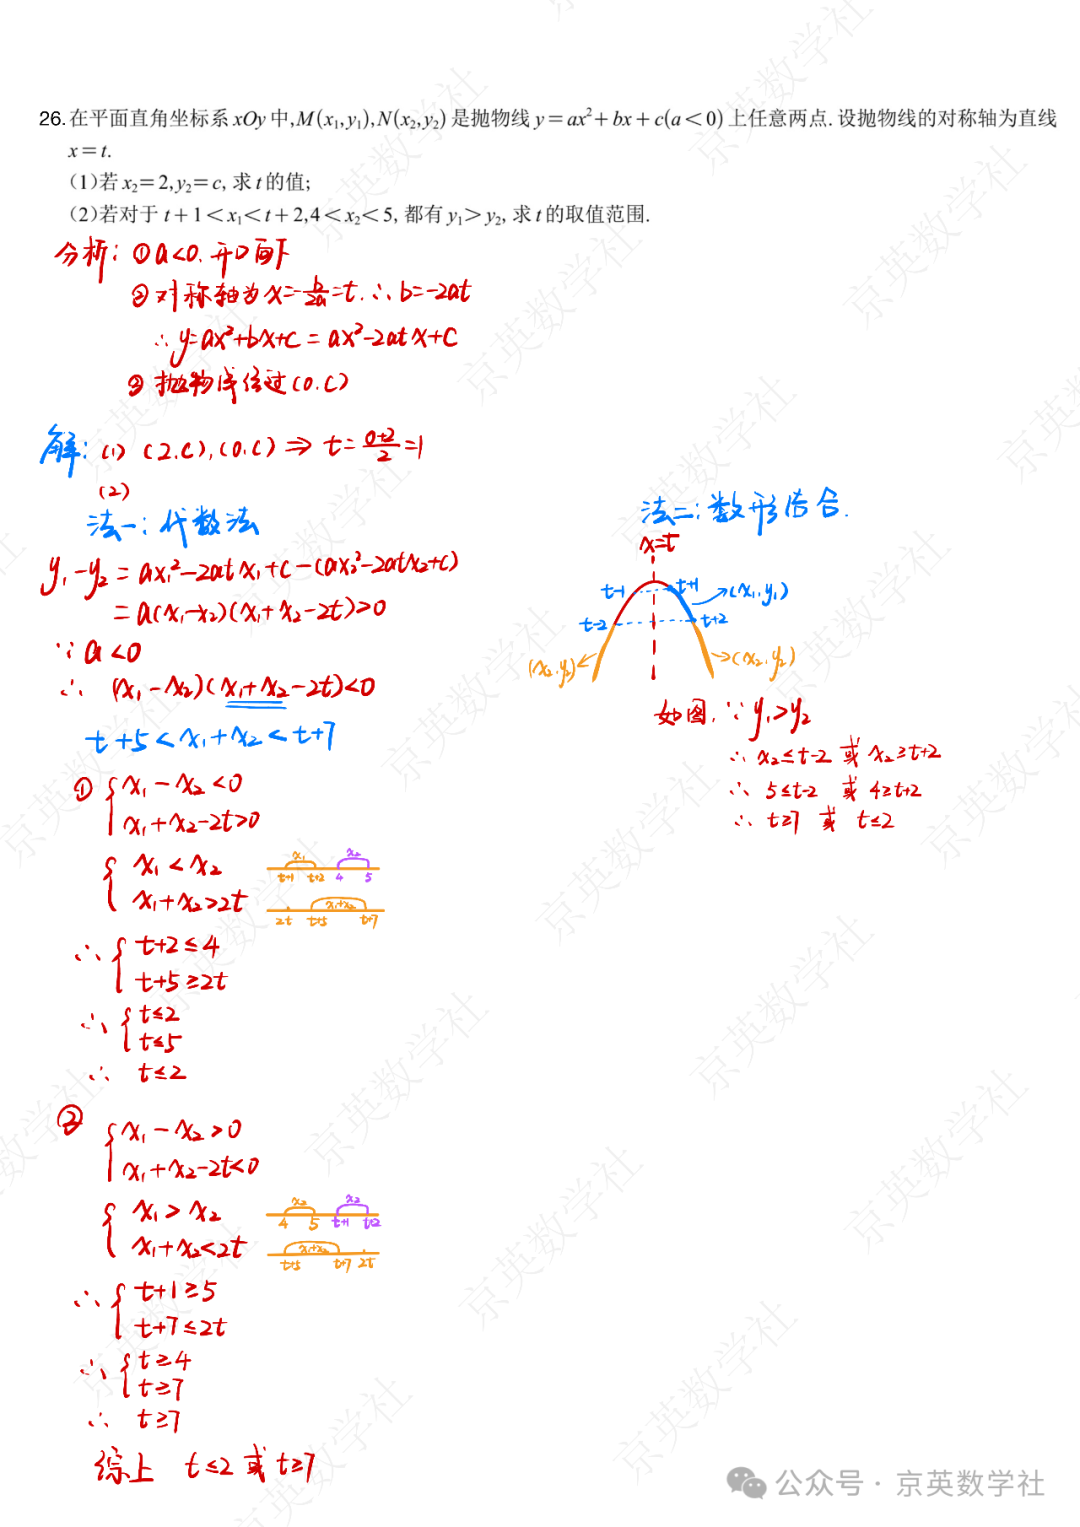 26. 在平面直角坐标系 xOy 中, M(x₁,y₁), N(x₂,y₂) 是抛物线 y=ax²+bx+c(a<0) 上任意两点. 设抛物线的对称轴为直线
x=t.
(1)若 x₂=2,y₂=c, 求 t 的值;
(2)若对于 t+1<x₁<t+2,4<x₂<5, 都有 y₁>y₂, 求 t 的取值范围.
分析: ①a<0. 开口向下
②对称轴为x=-b/2a=t. ∴b=-2at
∴y=ax²+bx+c=ax²-2atx+c
③抛物线经过(0.c)
解: (1) (2.c),(0.c)⇒t=(0+2)/2=1
(2)
法一: 代数法
y₁-y₂=ax₁²-2atx₁+c-(ax₂²-2atx₂+c)
=a(x₁-x₂)(x₁+x₂-2t)>0
∵a<0
∴(x₁-x₂)(x₁+x₂-2t)<0
t+5<x₁+x₂<t+7
① {x₁-x₂<0
x₁+x₂-2t>0
{x₁<x₂
x₁+x₂>2t
x₁ x₂
t+1 t+2 4 5
x₁+x₂
2t t+5 t+7
∴{t+2≤4
t+5≥2t
∴{t≤2
t≤5
∴ t≤2
② {x₁-x₂>0
x₁+x₂-2t<0
{x₁>x₂
x₁+x₂<2t
x₂ x₂
4 5 t+1 t+2
x₁+x₂
t+5 t+7 2t
∴{t+1≥5
t+7≤2t
∴{t≥4
t≥7
∴ t≥7
综上 t≤2或t≥7
法二: 数形结合.
x=t
t-1 t+1 (x₁,y₁)
t-2 t+2
(x₂,y₂) (x₂,y₂)
如图, ∵y₁>y₂
∴x₂≤t-2 或 x₂≥t+2
∴ 5≤t-2 或 4≥t+2
∴ t≥7 或 t≤2
公众号 · 京英数学社
京英数学社